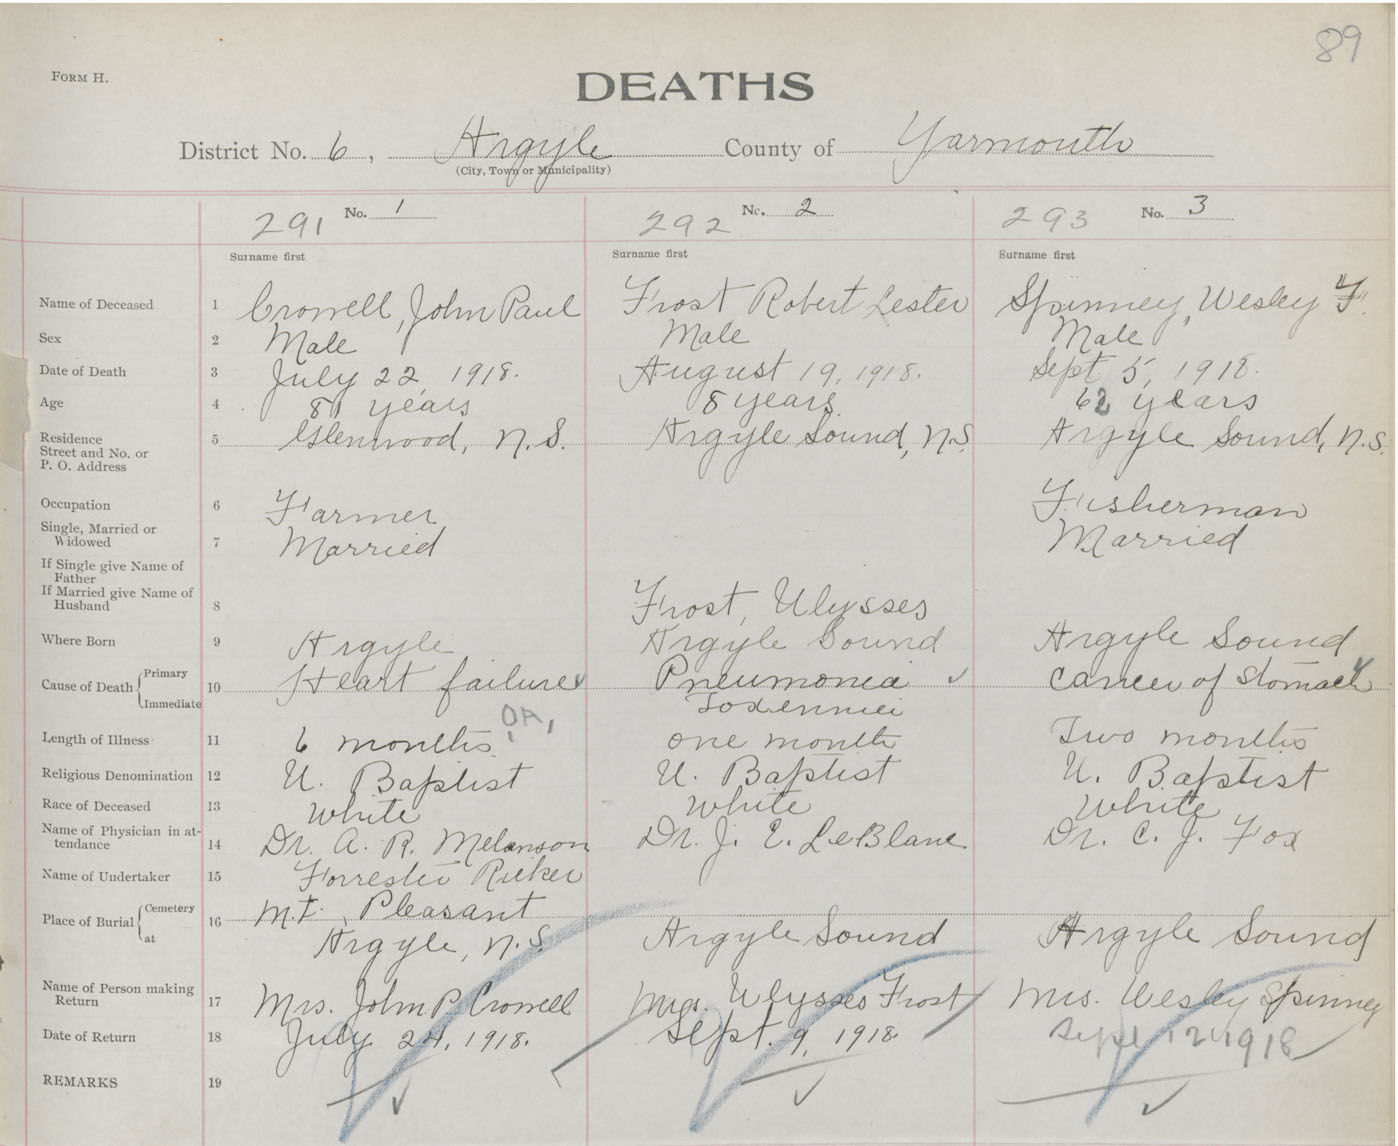 89
FORM H.
DEATHS
District No. 6, Argyle County of Yarmouth
(City, Town or Municipality)
291 No. 1 292 No. 2 293 No. 3
Surname first Surname first Surname first
Name of Deceased 1 Crowell, John Paul Frost Robert Lester Spinney, Wesley F.
Sex 2 Male Male Male
Date of Death 3 July 22, 1918. August 19, 1918. Sept 5, 1918.
Age 4 81 years 8 years 62 years
Residence 5 Glenwood, N.S. Argyle Sound, N.S. Argyle Sound, N.S.
Street and No. or
P. O. Address
Occupation 6 Farmer Fisherman
Single, Married or
Widowed 7 Married Married
If Single give Name of
Father
If Married give Name of
Husband 8 Frost, Ulysses
Where Born 9 Argyle Argyle Sound Argyle Sound
Cause of Death Primary 10 Heart failure Pneumonia Cancer of Stomach
Immediate Toxemia
Length of Illness 11 6 months OA, one month Two months
Religious Denomination 12 U. Baptist U. Baptist U. Baptist
Race of Deceased 13 White White White
Name of Physician in at-
tendance 14 Dr. A. R. Melanson Dr. J. E. LeBlanc Dr. C. J. Fox
Name of Undertaker 15 Forrester Ricker
Place of Burial Cemetery 16 Mt. Pleasant
at Argyle, N.S. Argyle Sound Argyle Sound
Name of Person making
Return 17 Mrs. John P. Crowell Mrs. Ulysses Frost Mrs. Wesley Spinney
Date of Return 18 July 24, 1918. Sept. 9, 1918 Sept 12 1918
REMARKS 19